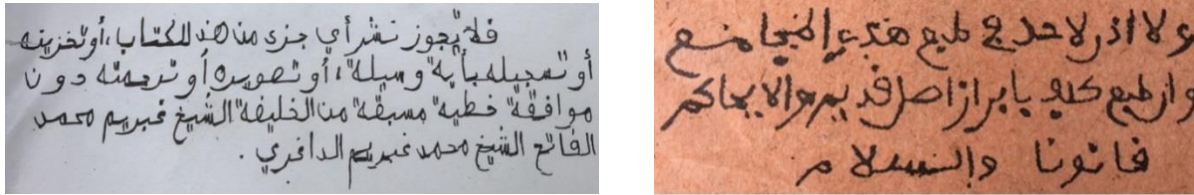 فلا يجوز نشر أي جزء من هذ الكتاب، أو تخزينه
أو تسجيله بأية وسيلة، أو تصويره أو ترجمته دون
موافقة خطية مسبقة من الخليفة الشيخ غبريم محمد
الفاتح الشيخ محمد غبريم الداغري.
ولا اذن لاحد في طبع هذه
وان طبع بابراز اصل قديم والا يحاكم
قانونا والسلام